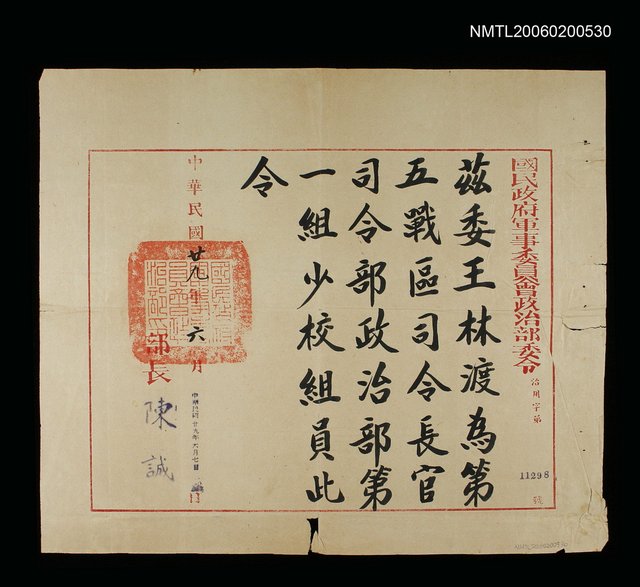 NMTL20060200530
國民政府軍事委員會政治部委令
治用字第
11298
號
茲委王林渡為第
五戰區司令長官
司令部政治部第
一組少校組員此
令
部長 陳誠
中華民國廿九年六月 日
中華民國廿九年六月七日
NMTL20060200530